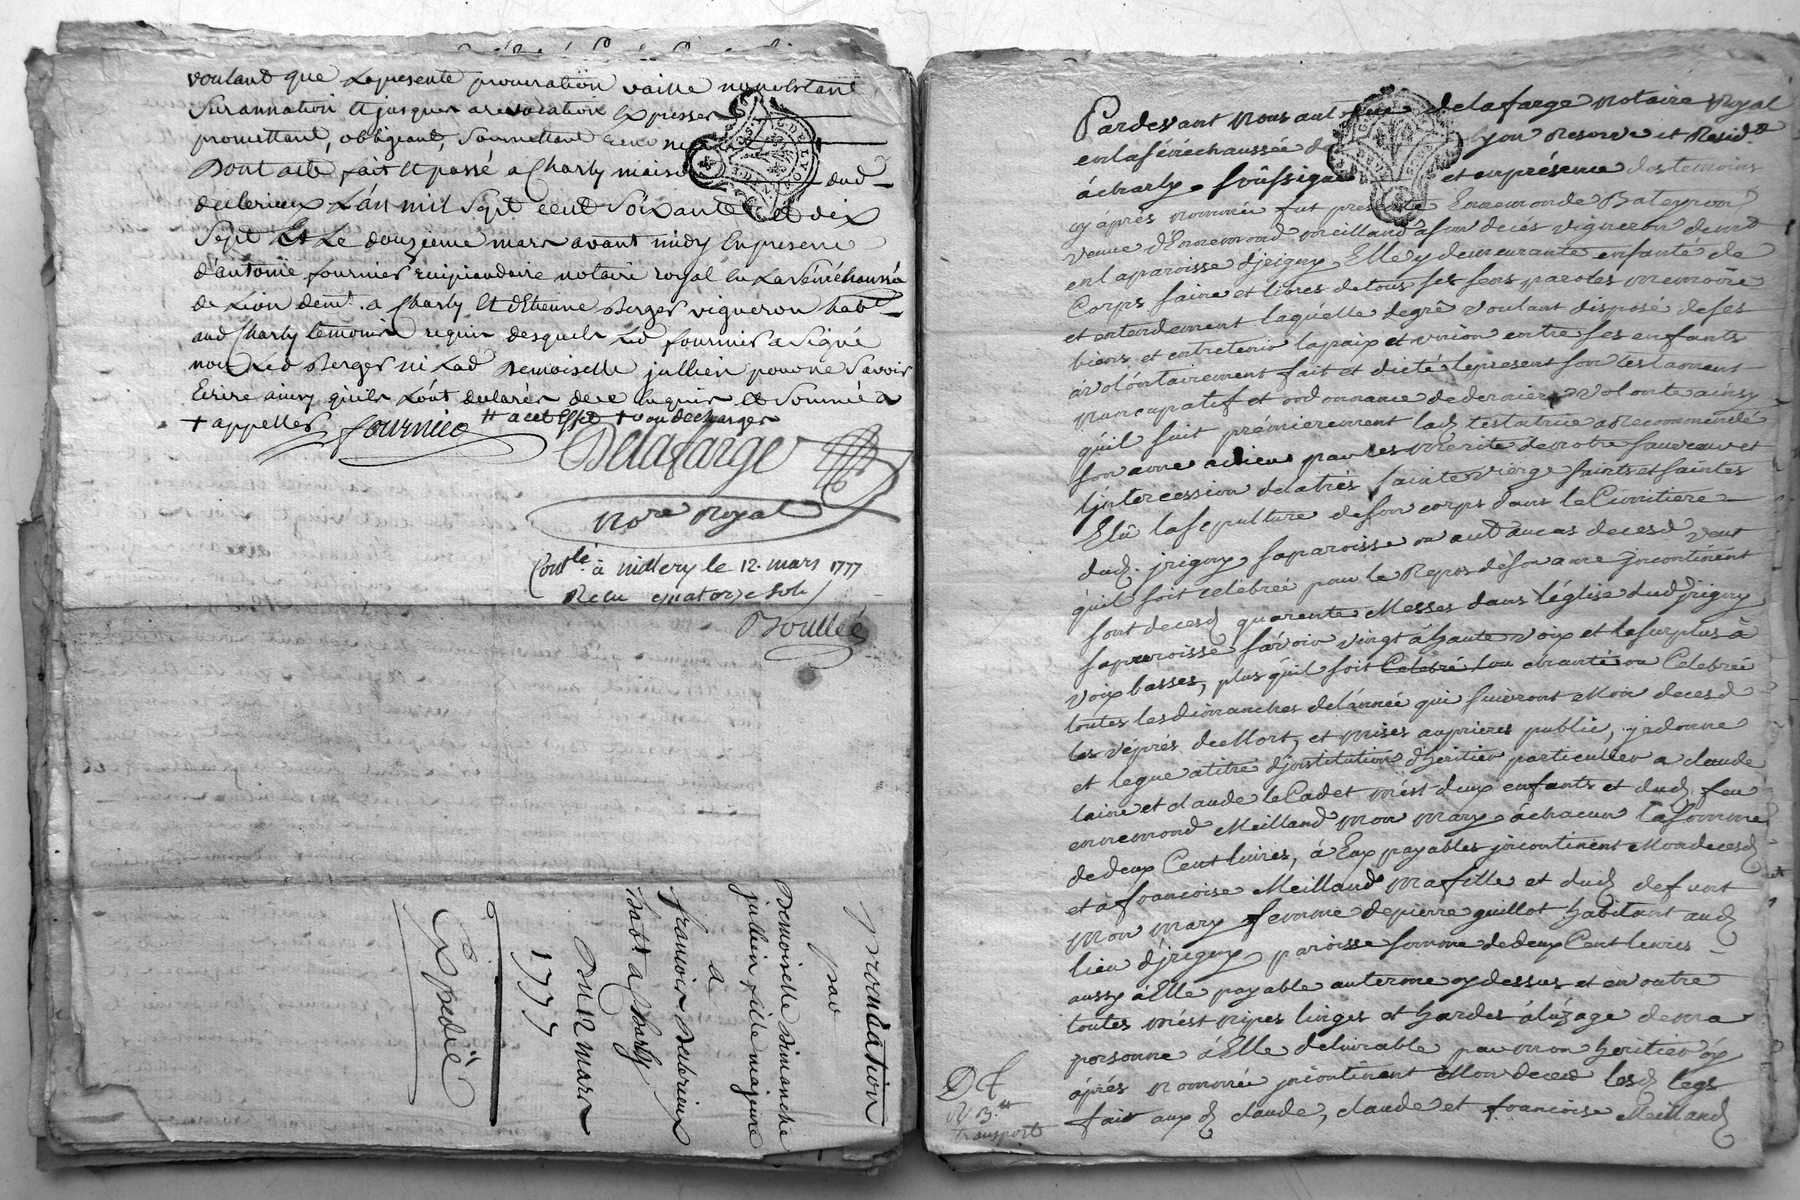 voulant que la presente procuration vaille nonobstant
Surannation et jusques a revocation Expresse
promettant, obligeant, Soumettant
Dont acte fait et passé a Charly maison dud
declerieux L'an mil Sept cent Soixante et dix
Sept Et Le douzieme mars avant midy En presence
d'antoine fournier recipiendaire notaire royal En La Sénéchaussée
de Lion demt a Charly Et d'Etienne Berger vigneron habt
aud Charly temoins requis desquels Led fournier a Signé
non Led Berger ni Lad Demoiselle jullien pour ne Savoir
Ecrire ainsy qu'ils L'ont declarés de ce Enquis Et Sommés
+ appeller # a cet effet + ou decharger
fournier
Delafarge
Nore Royal
Contlé à millery le 12. mars 1777
Recu quatorze sols
Boullée
procuration
par
Demoiselle dimanche
jullien fille majeure
a
francois declerieux
habt a Charly
Du 12 mars
1777
Expedié
Pardevant Nous delafarge notaire Royal
en la sénéchaussée de Lyon Reservé et Residt
à charly soussigné et en présence des temoins
cy après nommés fut presente Ennemonde Bateyron
veuve d'Ennemond meilland a son decés vigneron demt
en la paroisse d'jrigny Elle y demeurante enfante de
Corps saine et libres de tous ses sens paroles memoire
et entendement laquelle de gré voulant disposé de ses
biens et entretenir la paix et union entre ses enfants
à volontairement fait et dicté le présent son testament
nuncupatif et ordonnance de derniere volonté ainsy
qu'il suit premierement lad testatrice a Recommendé
son ame a dieu par les merite de notre sauveur et
l'jntercession de la trés sainte vierge saints et saintes
Elû la sepulture de son corps dans le Cimitiere
dud. jrigny sa paroisse ou aud au cas deced veut
qu'il soit celebreé pour le Repos de son ame jncontinent
sont deced quarente Messes dans l'église dud jrigny
sa paroisse sávoir vingt à haute voix et le surplus à
voix basses, plus qu'il soit Celebré chanté ou Celebreé
toutes les dimanches de l'année qui suivront Mon deced
les vépres de Mort, et mises au prieres public, jedonne
et legue a titre d'jnstitution d'heritier particulier a claude
laine et claude le Cadet mest deux enfants et dud. feu
ennemond Meilland mon mary à chacun la somme
de deux Cent livres, à Eux payables jncontinent Mon deced
et à francoise Meilland ma fille et dud defunt
mon mary femme de pierre guillot habitant aud
lieu d'jrigny paroisse somme de deux Cent livres
aussy à Elle payable au terme cy dessus et en outre
toutes mest nipes linges et hardes à l'uzage de ma
personne à Elle delivrable par mon heritier cy
áprés nommé jncontinent Mon deced lesd legs
fait aux d claude, claude et francoise Meilland
transport